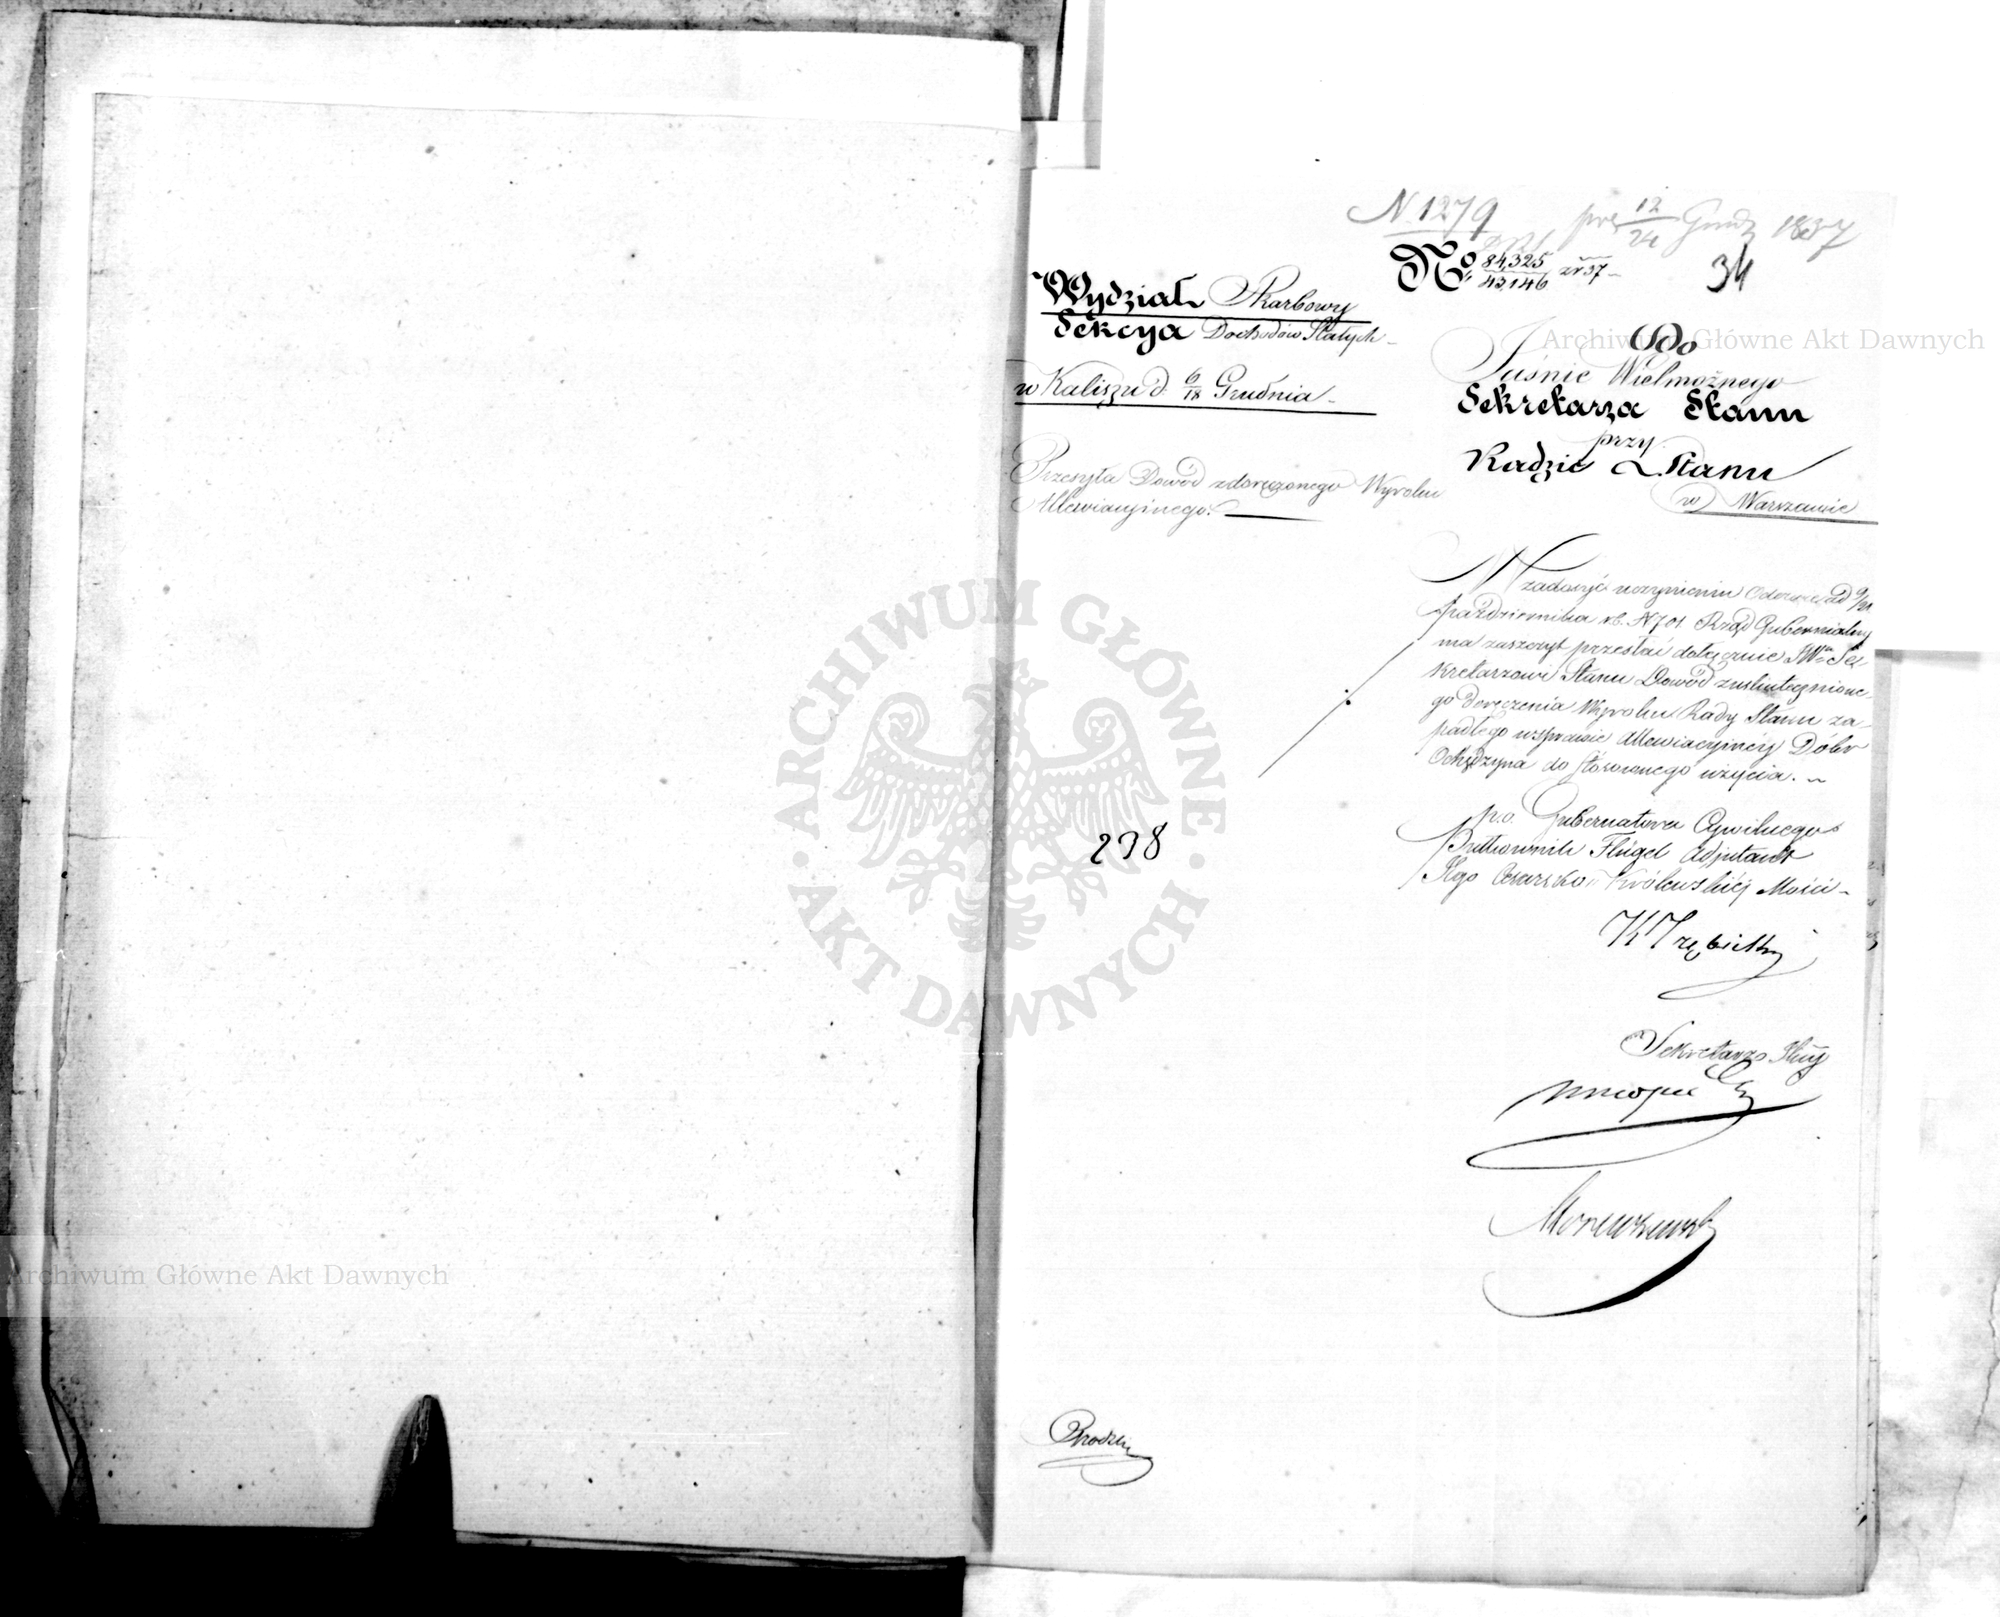 N 1279 prez 12/24 Grud 1837
No 84,325/43,146 zr 37
34
Wydział Skarbowy
Sekcya Dochodów Stałych
w Kaliszu d. 6/18 Grudnia
Przesyła Dowód zdoręczonego Wyroku
Allewiacyjnego.
Do
Jaśnie Wielmożnego
Sekretarza Stanu
przy
Radzie Stanu
w Warszawie
W zadosyć uczynieniu Odezwie z d 9/21
Października rb. N 701 Rząd Gubernialny
ma zaszczyt przesłać dołącznie JWu Se
kretarzowi Stanu Dowód zuskutecznione
go doręczenia Wyroku Rady Stanu za
padłego wsprawie Allewiacyjnéy Dóbr
Ochędzyna do stósownego użycia.
p.o. Gubernatora Cywilnego
Pułkownik Fligel Adjutant
Jego Cesarsko Królewskiéj Mości
238
Sekretarz
Archiwum Główne Akt Dawnych
Archiwum Główne Akt Dawnych
ARCHIWUM GŁÓWNE AKT DAWNYCH